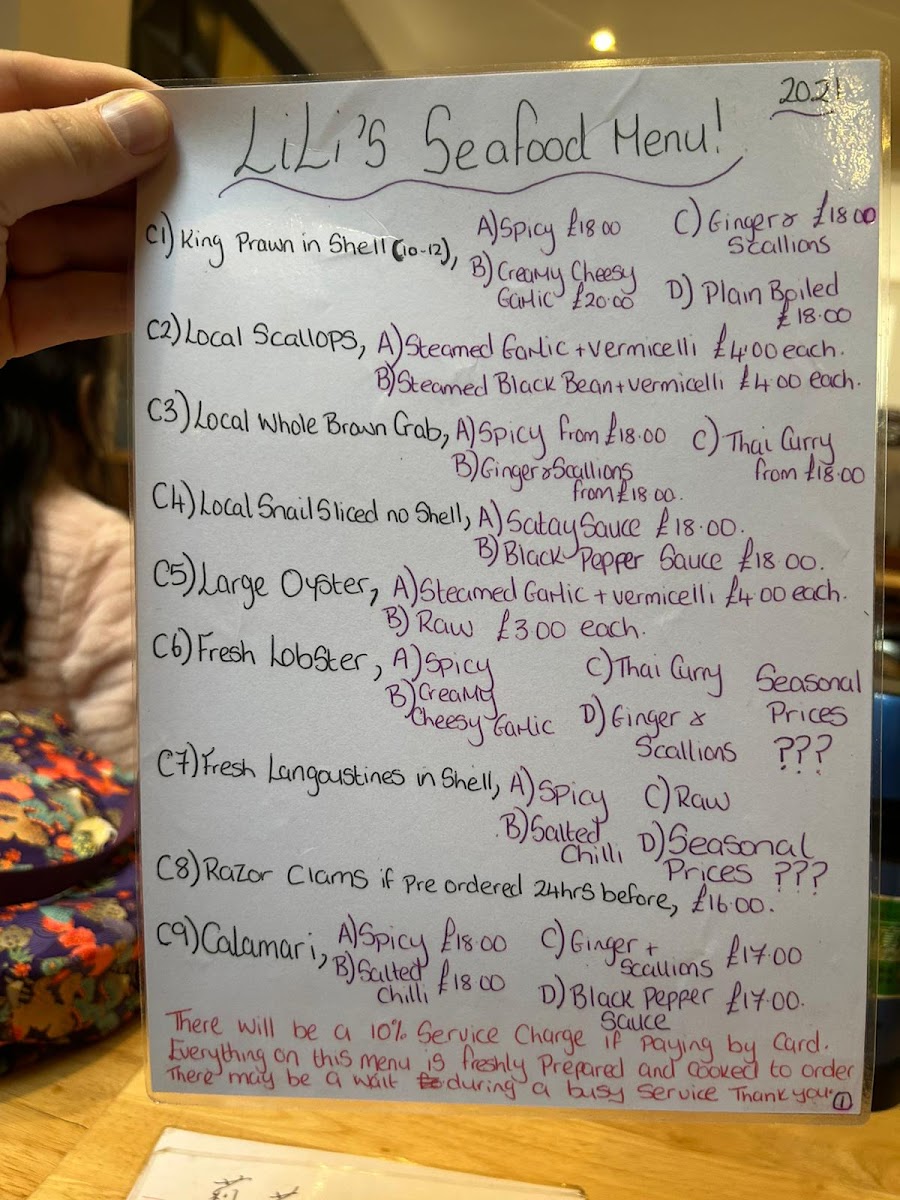 2021
LiLi's Seafood Menu!
C1) King Prawn in Shell (10-12), A) Spicy £18.00 C) Ginger & Scallions £18.00
B) Creamy Cheesy Garlic £20.00 D) Plain Boiled £18.00
C2) Local Scallops, A) Steamed Garlic + vermicelli £4.00 each.
B) Steamed Black Bean + vermicelli £4.00 each.
C3) Local Whole Brown Crab, A) Spicy from £18.00 C) Thai Curry from £18.00
B) Ginger & Scallions from £18.00.
C4) Local Snail Sliced no Shell, A) Satay Sauce £18.00.
B) Black Pepper Sauce £18.00.
C5) Large Oyster, A) Steamed Garlic + vermicelli £4.00 each.
B) Raw £3.00 each.
C6) Fresh Lobster, A) Spicy C) Thai Curry Seasonal Prices ???
B) Creamy Cheesy Garlic D) Ginger & Scallions
C7) Fresh Langoustines in Shell, A) Spicy C) Raw
B) Salted Chilli D) Seasonal Prices ???
C8) Razor Clams if Pre ordered 24hrs before, £16.00.
C9) Calamari, A) Spicy £18.00 C) Ginger + Scallions £17.00
B) Salted Chilli £18.00 D) Black Pepper Sauce £17.00.
There will be a 10% Service Charge if Paying by Card.
Everything on this menu is freshly Prepared and cooked to order
There may be a wait during a busy Service Thank you. 1